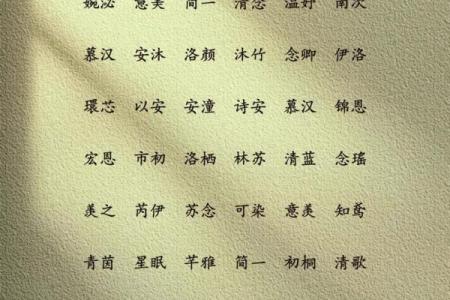 婉泌 意美 简一 清念 温妤 南次
慕汉 安沐 洛颜 沐竹 念卿 伊洛
環芯 以安 安潼 诗安 慕汉 锦恩
宏恩 市初 洛栖 林苏 清蓝 念瑶
羡之 芮伊 苏念 可染 意羡 知鸢
青茵 星眠 芊雅 简一 初桐 清歌